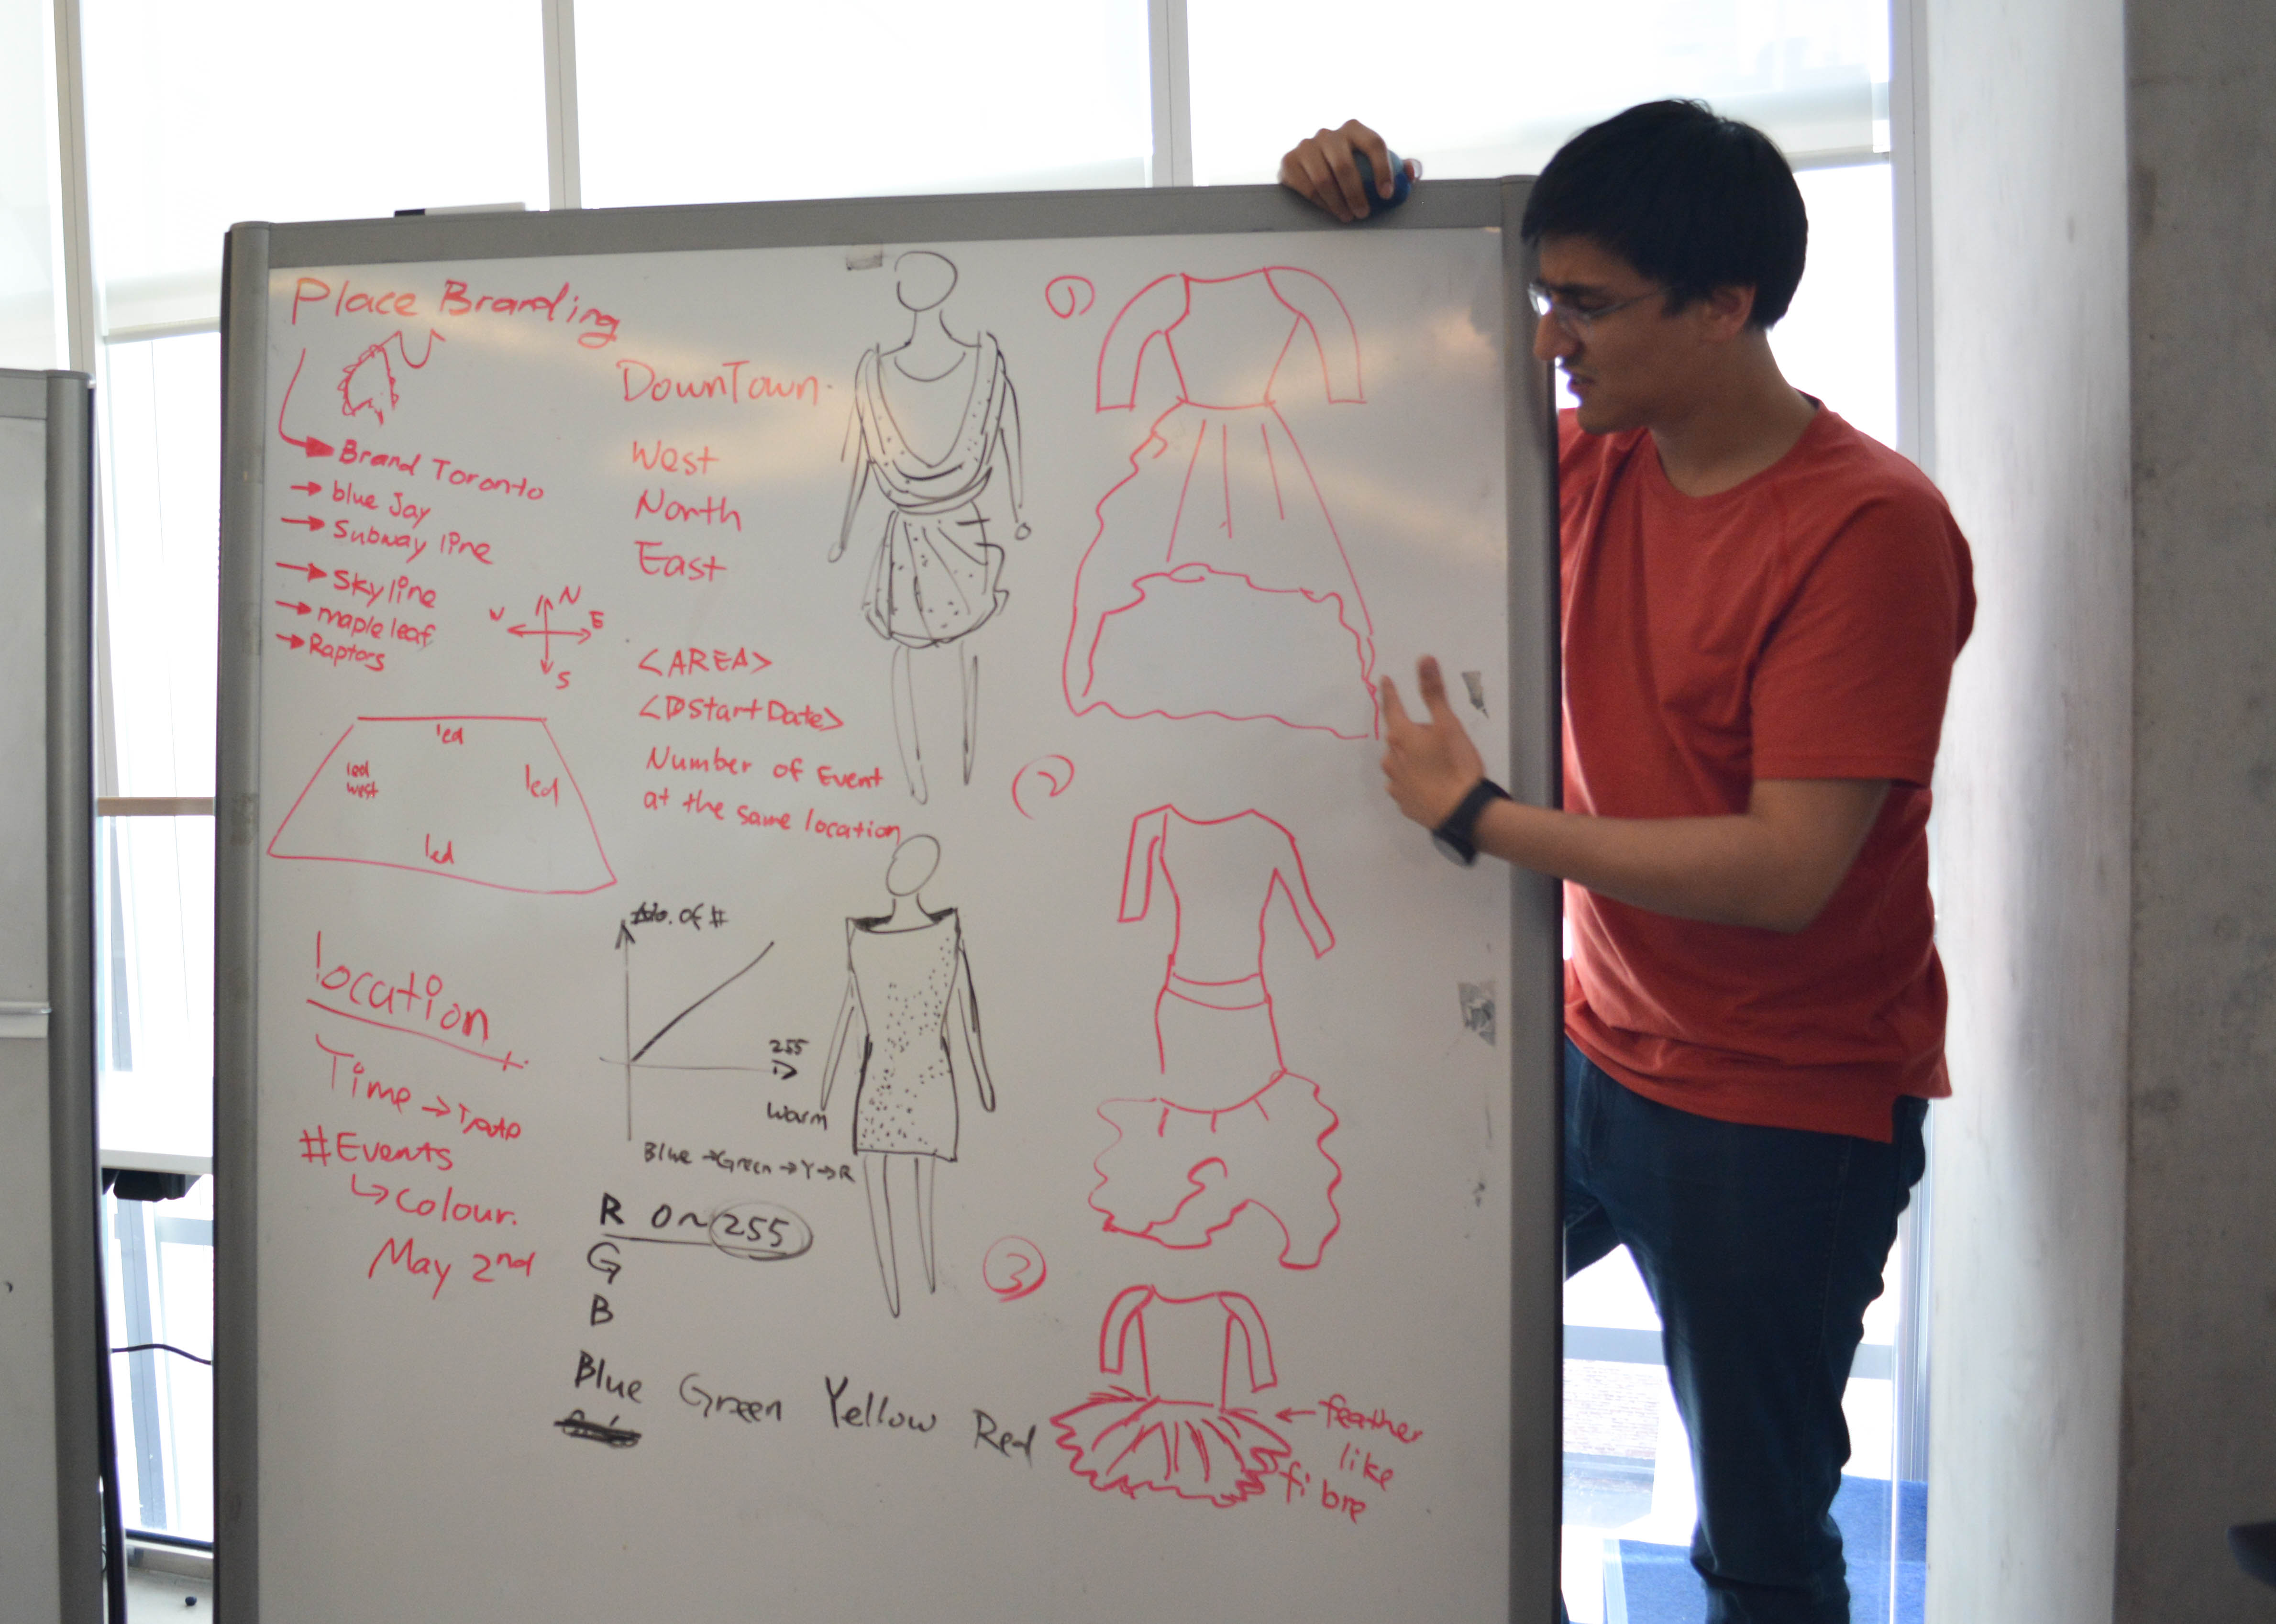 Place Branding
Brand Toronto
blue Jay
Subway line
Skyline
maple leaf
Raptors
N
W E
S
led
led
west
led
led
location
Time → Date
#Events
↳ colour.
May 2nd
DownTown.
West
North
East
<AREA>
<DStartDate>
Number of Event
at the same location
No. of #
255
warm
Blue → Green → Y → R
R 0~255
G
B
Blue Green Yellow Red
①
②
③
← feather
like
fibre